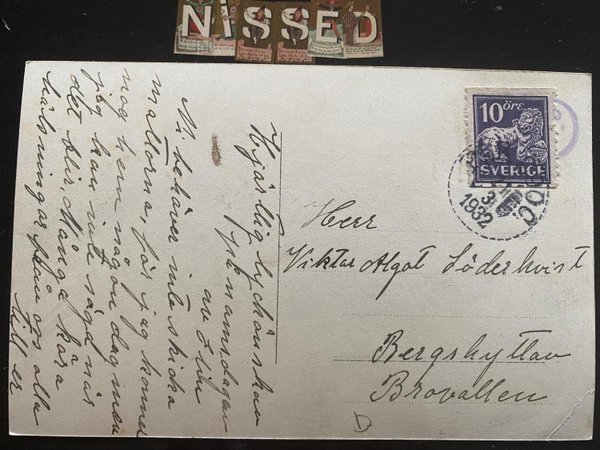 NiSSED
10 ÖRE
SVERIGE
1932
Herr
Viktor Algot Söderkvist
Bergshyttan
Brovallen
Hjärtlig lyckönskan
på namnsdagen
av
Ni behöver inte skicka
mattorna, för jag kommer
nog hem någon dag men
jag kan inte säga när
det blir. Många kära
hälsningar från oss alla
till er